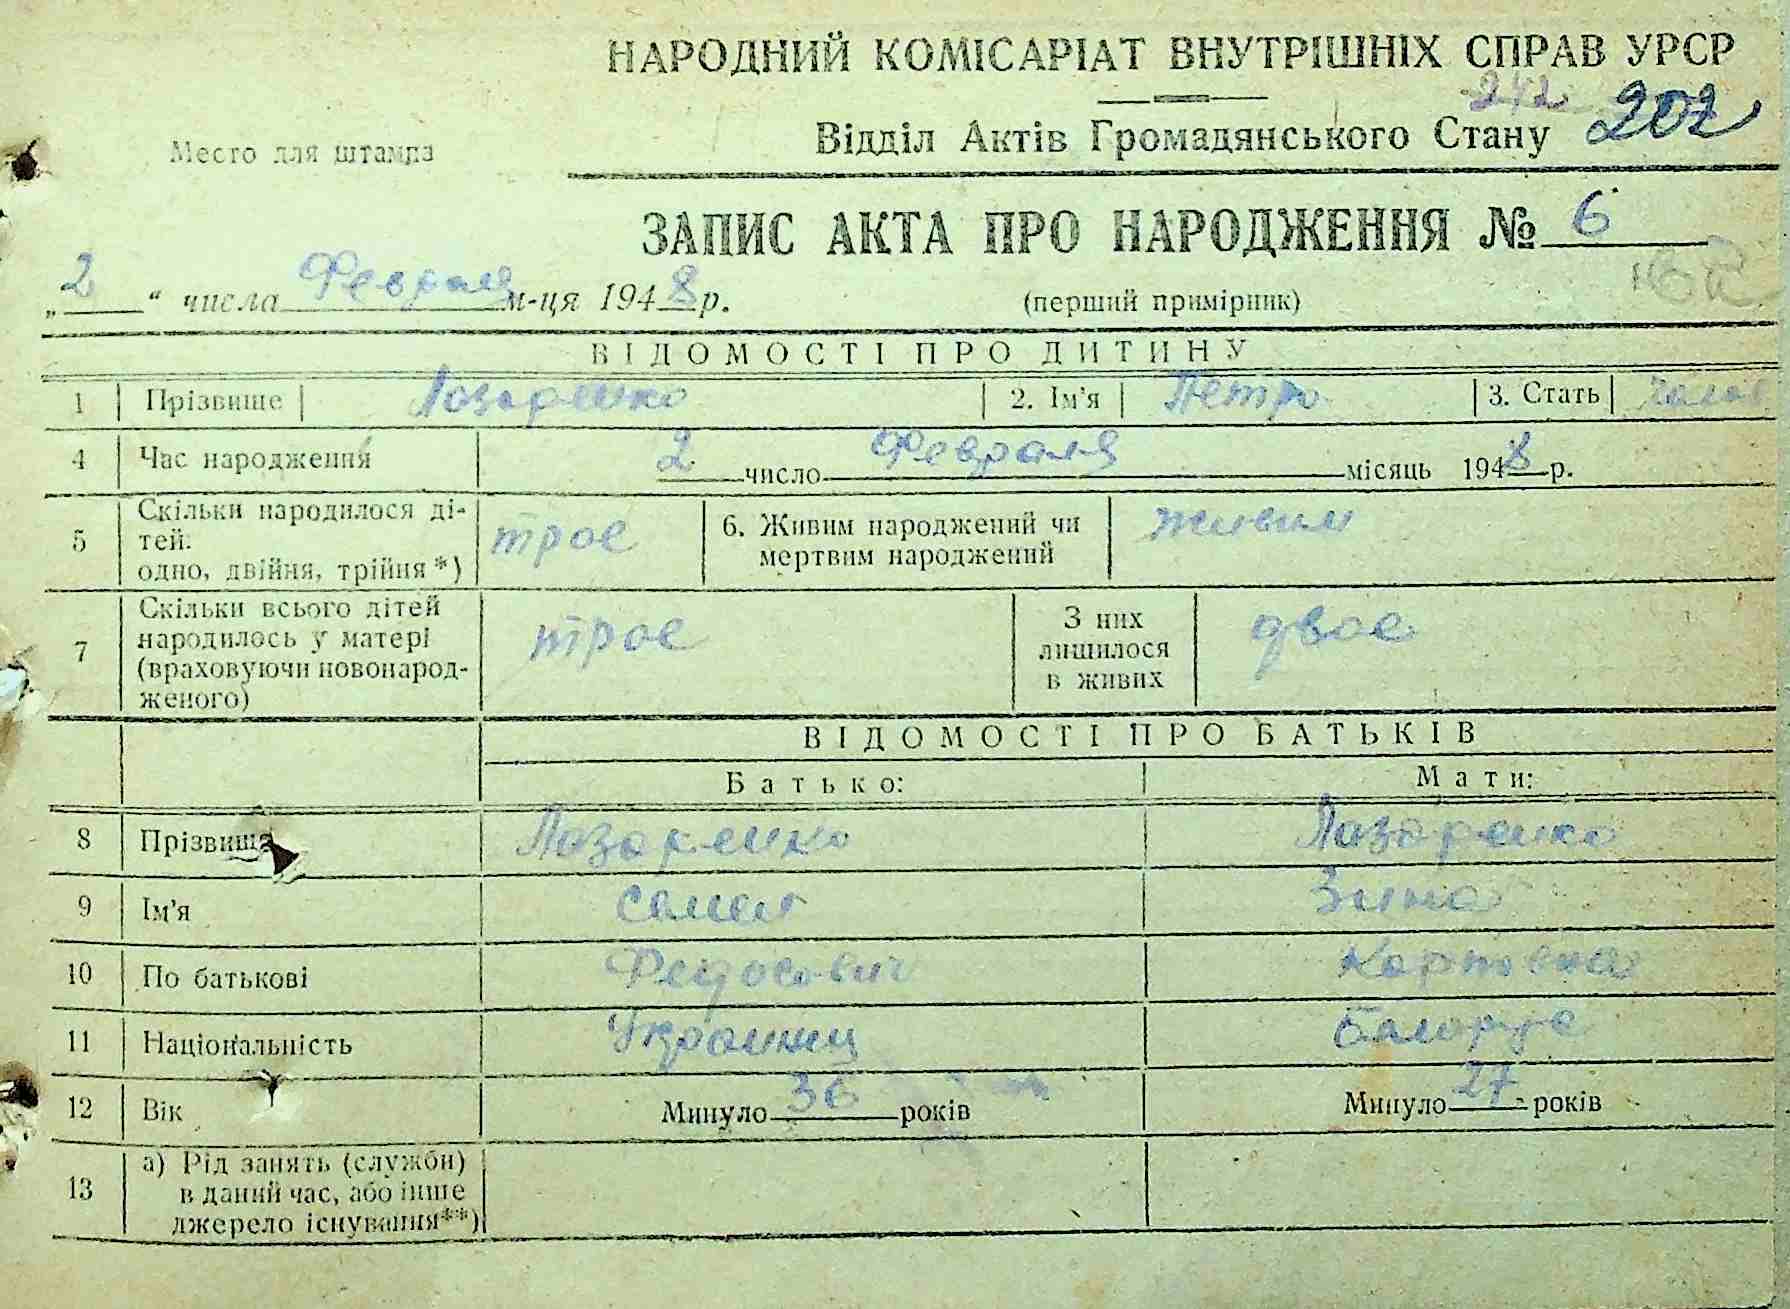 НАРОДНИЙ КОМІСАРІАТ ВНУТРІШНІХ СПРАВ УРСР
242
Место для штампа
Відділ Актів Громадянського Стану 202
ЗАПИС АКТА ПРО НАРОДЖЕННЯ № 6
„2“ числа Февраля м-ця 1948 р.
(перший примірник)
ВІДОМОСТІ ПРО ДИТИНУ
1 Прізвище Лазаренко 2. Ім'я Петро 3. Стать
4 Час народження 2 число Февраля місяць 1948 р.
5 Скільки народилося ді-
тей:
одно, двійня, трійня *)
трое
6. Живим народжений чи
мертвим народжений
живим
7 Скільки всього дітей
народилось у матері
(враховуючи новонарод-
женого)
трое
З них
лишилося
в живих
двое
ВІДОМОСТІ ПРО БАТЬКІВ
Батько: Мати:
8 Прізвище Лазаренко Лазаренко
9 Ім'я Зина
10 По батькові Федосович Карповна
11 Національність Украинец
12 Вік Минуло 36 років Минуло 27 років
13 а) Рід занять (служби)
в даний час, або інше
джерело існування**)